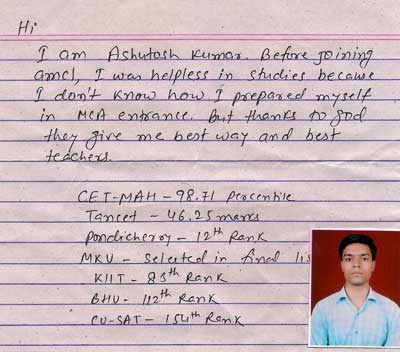 Hi
I am Ashutosh Kumar. Before joining
amcl, I was helpless in studies because
I don't know how I prepared myself
in MCA entrance. But thanks to god
they give me best way and best
teachers.
CET-MAH – 98.71 Percentile
Tancet – 46.25 marks
Pondicherry – 12th Rank
MKU – Selected in final lis
KIIT – 83th Rank
BHU – 112th Rank
CU-SAT – 154th Rank